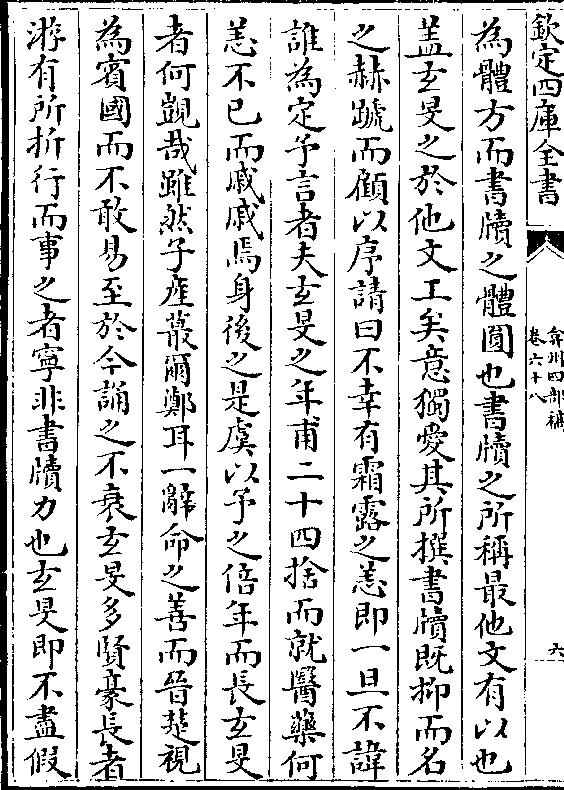 欽定四庫全書
弇州四部稿
卷六十八
六
為體方而書牘之體圓也書牘之所稱最他文有以也
盖玄旻之於他文工矣意獨愛其所撰書牘既抑而名
之赫蹏而顧以序請曰不幸有霜露之恙即一旦不諱
誰為定予言者夫玄旻之年甫二十四捨而就醫藥何
恙不已而戚戚焉身後之是虞以予之倍年而長玄旻
者何覬哉雖然子產蕞爾鄭耳一辭命之善而晉楚視
為賓國而不敢易至於今誦之不衰玄旻多賢豪長者
游有所折行而事之者寧非書牘力也玄旻即不盡假